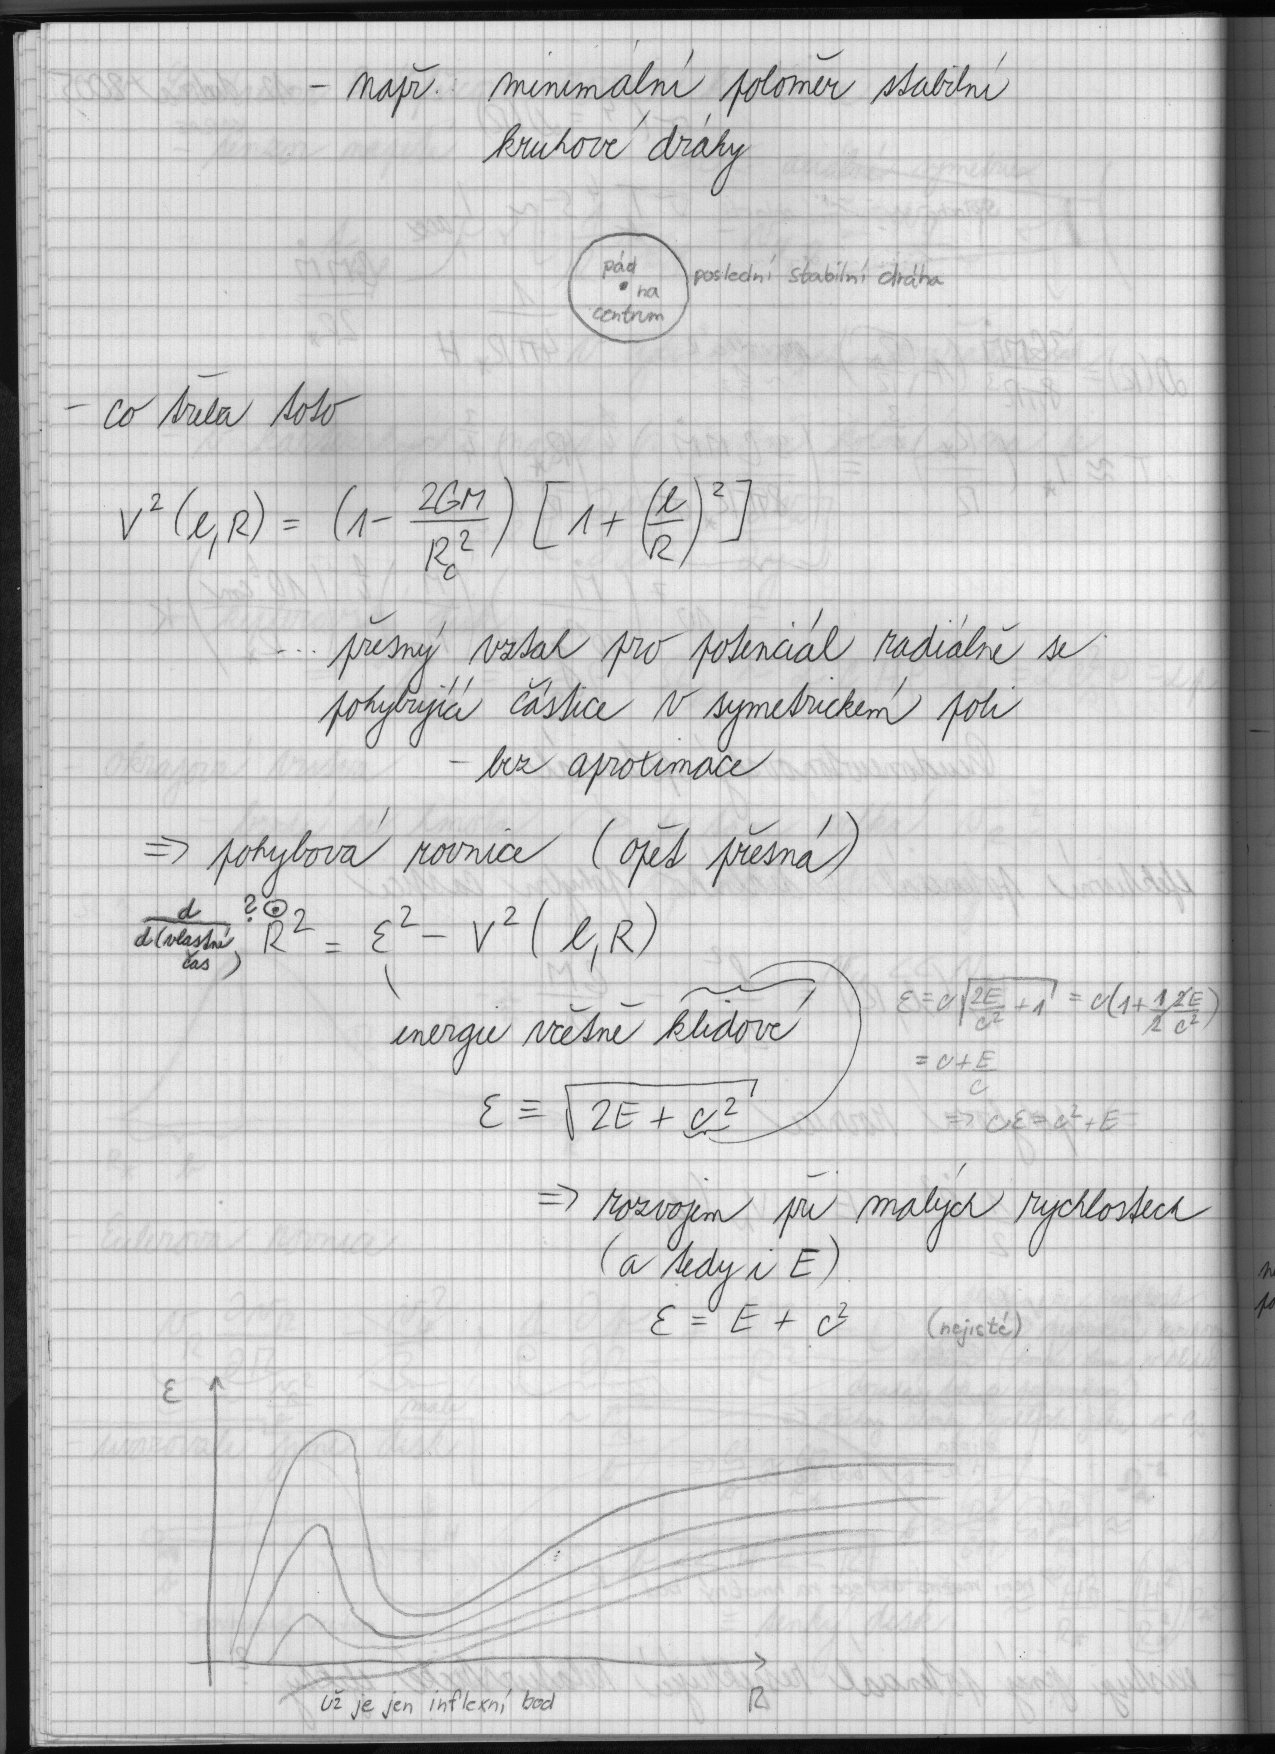 - např. minimální poloměr stabilní
kruhové dráhy
pád
na
centrum
poslední stabilní dráha
- co třeba toto
V²(l,R) = (1 - 2GM/R_c²) [1 + (l/R)²]
... přesný vztah pro potenciál radiálně se
pohybující částice v symetrickém poli
- bez aproximace
=> pohybová rovnice (opět přesná)
d/d(vlastní čas) ? ⊙ R² = ε² - V²(l,R)
energie včetně klidové
ε = c√(2E/c² + 1) = c(1 + 1/2 2E/c²)
= c + E/c
ε ≡ √(2E + c²)
=> cε = c² + E
=> rozvojem při malých rychlostech
(a tedy i E)
ε = E + c² (nejisté)
ε
?
R
už je jen inflexní bod